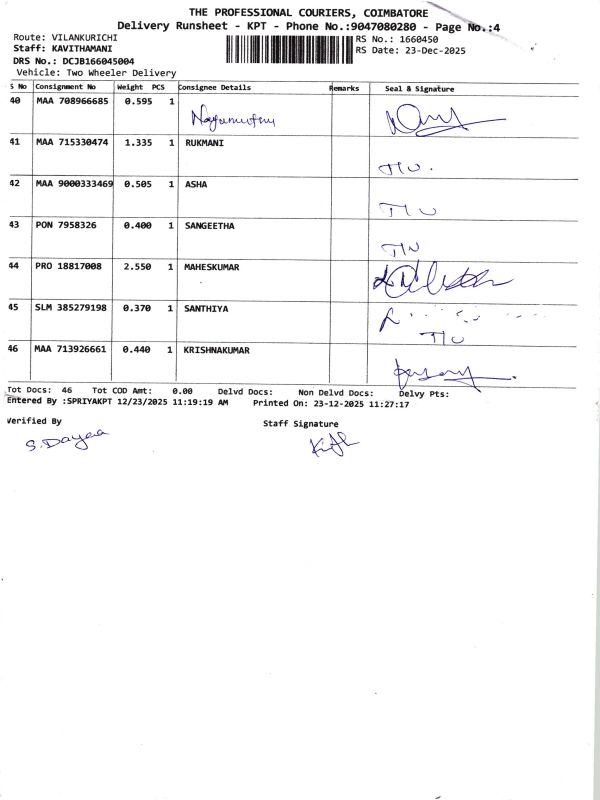 THE PROFESSIONAL COURIERS, COIMBATORE
Delivery Runsheet - KPT - Phone No.:9047080280 - Page No.:4
Route: VILANKURICHI RS No.: 1660450
Staff: KAVITHAMANI RS Date: 23-Dec-2025
DRS No.: DCJB166045004
Vehicle: Two Wheeler Delivery
S No Consignment No Weight PCS Consignee Details Remarks Seal & Signature
40 MAA 708966685 0.595 1
41 MAA 715330474 1.335 1 RUKMANI
42 MAA 9000333469 0.505 1 ASHA
43 PON 7958326 0.400 1 SANGEETHA
44 PRO 18817008 2.550 1 MAHESKUMAR
45 SLM 385279198 0.370 1 SANTHIYA
46 MAA 713926661 0.440 1 KRISHNAKUMAR
Tot Docs: 46 Tot COD Amt: 0.00 Delvd Docs: Non Delvd Docs: Delvy Pts:
Entered By :SPRIYAKPT 12/23/2025 11:19:19 AM Printed On: 23-12-2025 11:27:17
Verified By Staff Signature
S. Dayaa